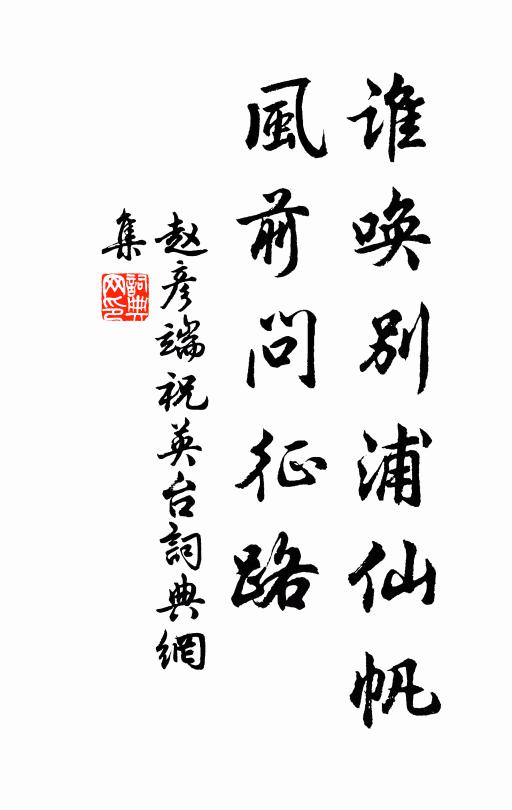 谁唤别浦仙帆
風前问征路
赵彦端祝英台詞典網
集
詞典
网印